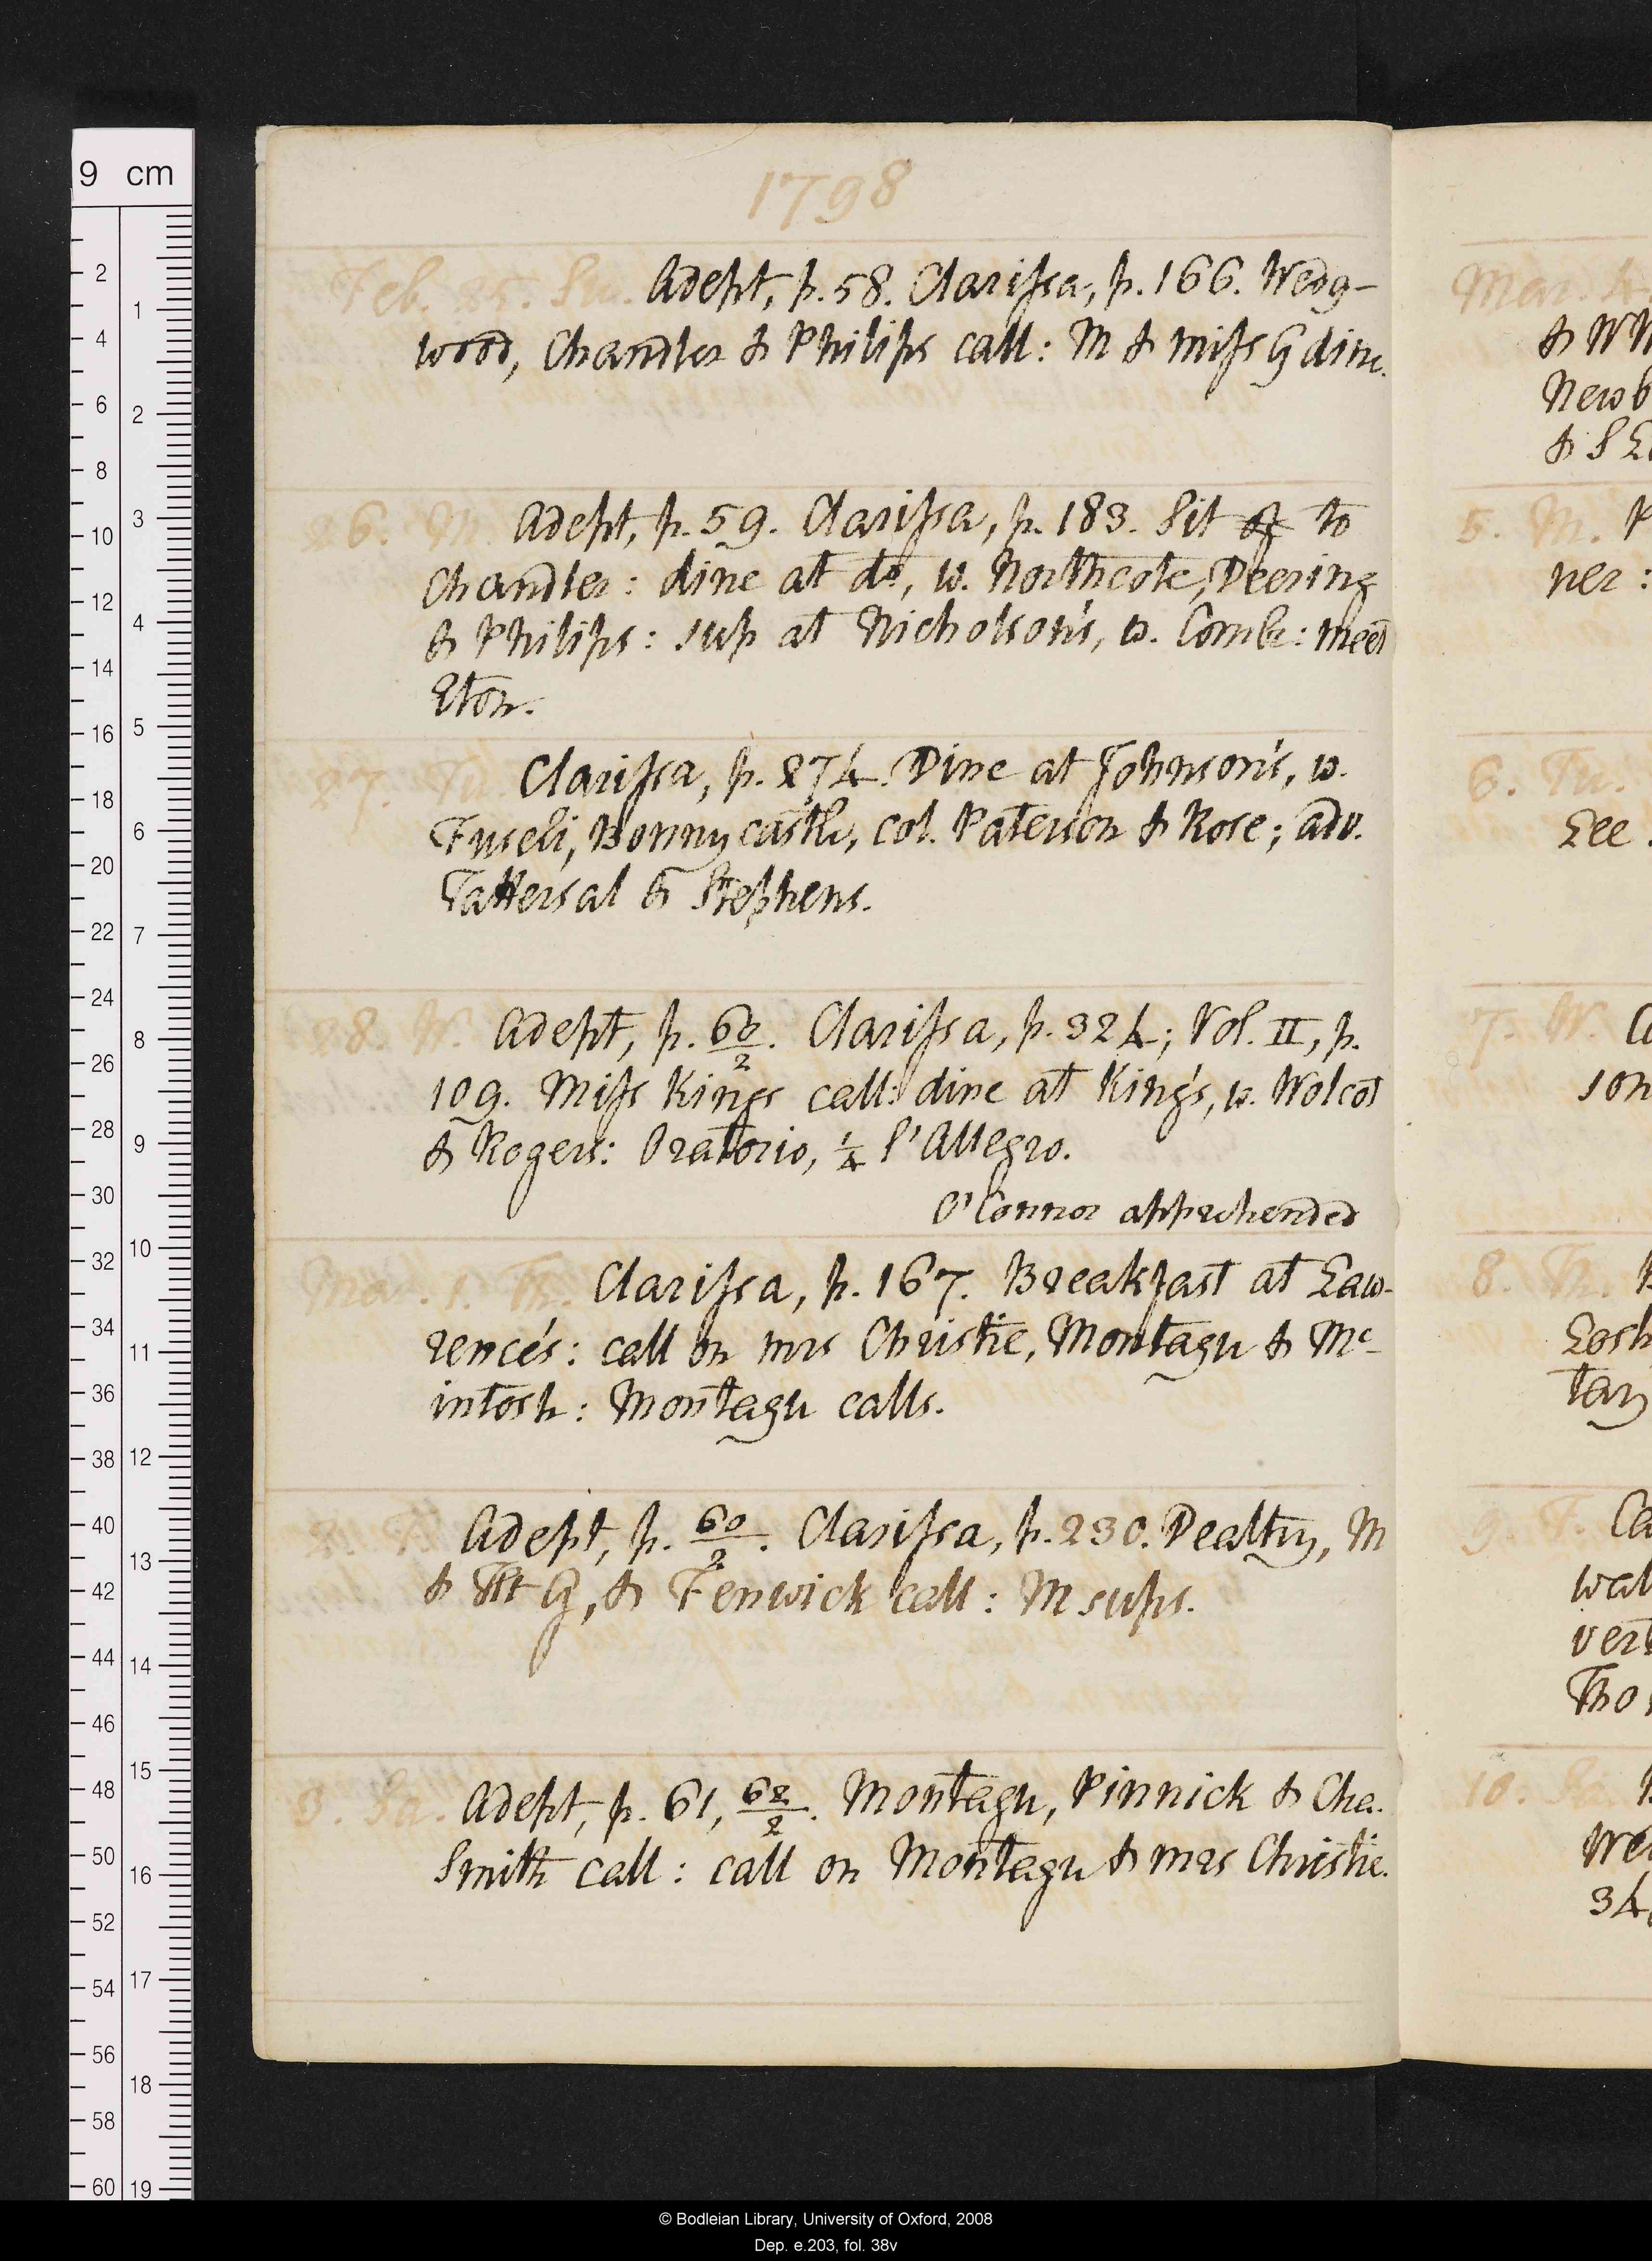 1798
Feb. 25. Su. Adept, p. 58. Clarissa, p. 166. Wedg-
wood, Chandler & Philips call: M & miss G dine.
26. M. Adept, p. 59. Clarissa, p. 183. Sit to
Chandler: dine at do, w. Northcote, Deering
& Philips: sup at Nicholson's, w. Combe: meet
Eton.
27. Tu. Clarissa, p. 274. Dine at Johnson's, w.
Fuseli, Bonnycastle, col. Paterson & Rose; adv.
Tattersal & Stephens.
28. W. Adept, p. 60/2. Clarissa, p. 324; Vol. II, p.
109. Miss Kings call: dine at King's, w. Wolcot
& Rogers: Oratorio, ¼ l'Allegro.
O'Connor apprehended
Mar. 1. Th. Clarissa, p. 167. Breakfast at Law-
rence's: call on mrs Christie, Montagu & Mc-
intosh: Montagu calls.
2. F. Adept, p. 60/2. Clarissa, p. 230. Dealtry, M
& Ht G, & Fenwick call: M sups.
3. Sa. Adept, p. 61, 62/2. Montagu, Pinnick & Cha.
Smith call: call on Montagu & mrs Christie.
Mar. 4
Newb
5. M.
ner:
6. Tu.
Lee.
7. W.
son
8. Th.
Losh
tary
9. F. Ca
wal
vert
Tho
10. Sa.
34
9 cm
2 4 6 8 10 12 14 16 18 20 22 24 26 28 30 32 34 36 38 40 42 44 46 48 50 52 54 56 58 60
1 2 3 4 5 6 7 8 9 10 11 12 13 14 15 16 17 18 19
© Bodleian Library, University of Oxford, 2008
Dep. e.203, fol. 38v